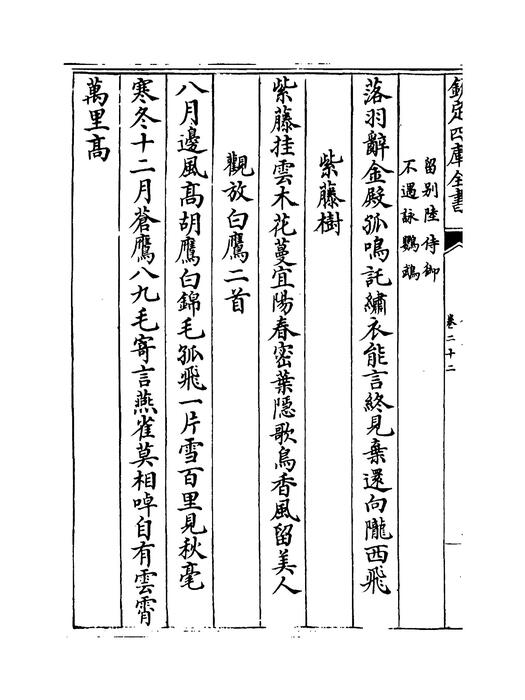 欽定四庫全書
卷二十二
留别陸侍御
不遇詠鸚鵡
落羽辭金殿孤鳴託繡衣能言終見棄還向隴西飛
紫藤樹
紫藤挂雲木花蔓宜陽春密葉隱歌鳥香風留美人
觀放白鷹二首
八月邊風髙胡鷹白錦毛孤飛一片雪百里見秋毫
寒冬十二月蒼鷹八九毛寄言燕雀莫相啅自有雲霄
萬里髙